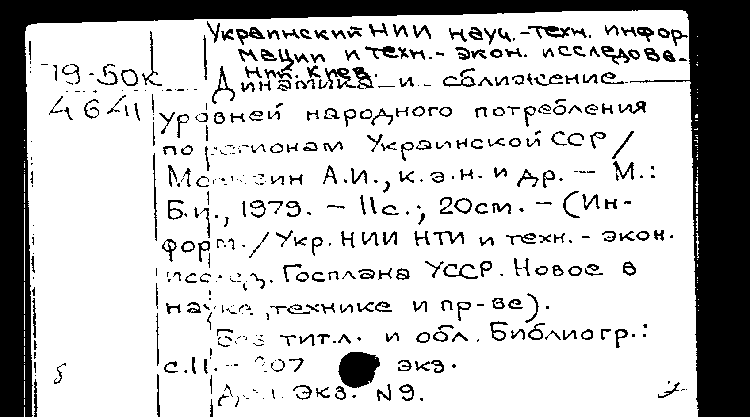 Украинский НИИ науч.-техн. инфор-
мации и техн.-экон. исследова-
ний. Киев.
19-50к
4641
Динамика и сближение
уровней народного потребления
по регионам Украинской ССР /
А.И., к.э.н. и др. — М.:
Б.и., 1979. — 11с.; 20см. — (Ин-
форм. / Укр. НИИ НТИ и техн.-экон.
исслед. Госплана УССР. Новое в
науке, технике и пр-ве).
Без тит.л. и обл. Библиогр.:
с.11. — 207 экз.
Экз. N9.